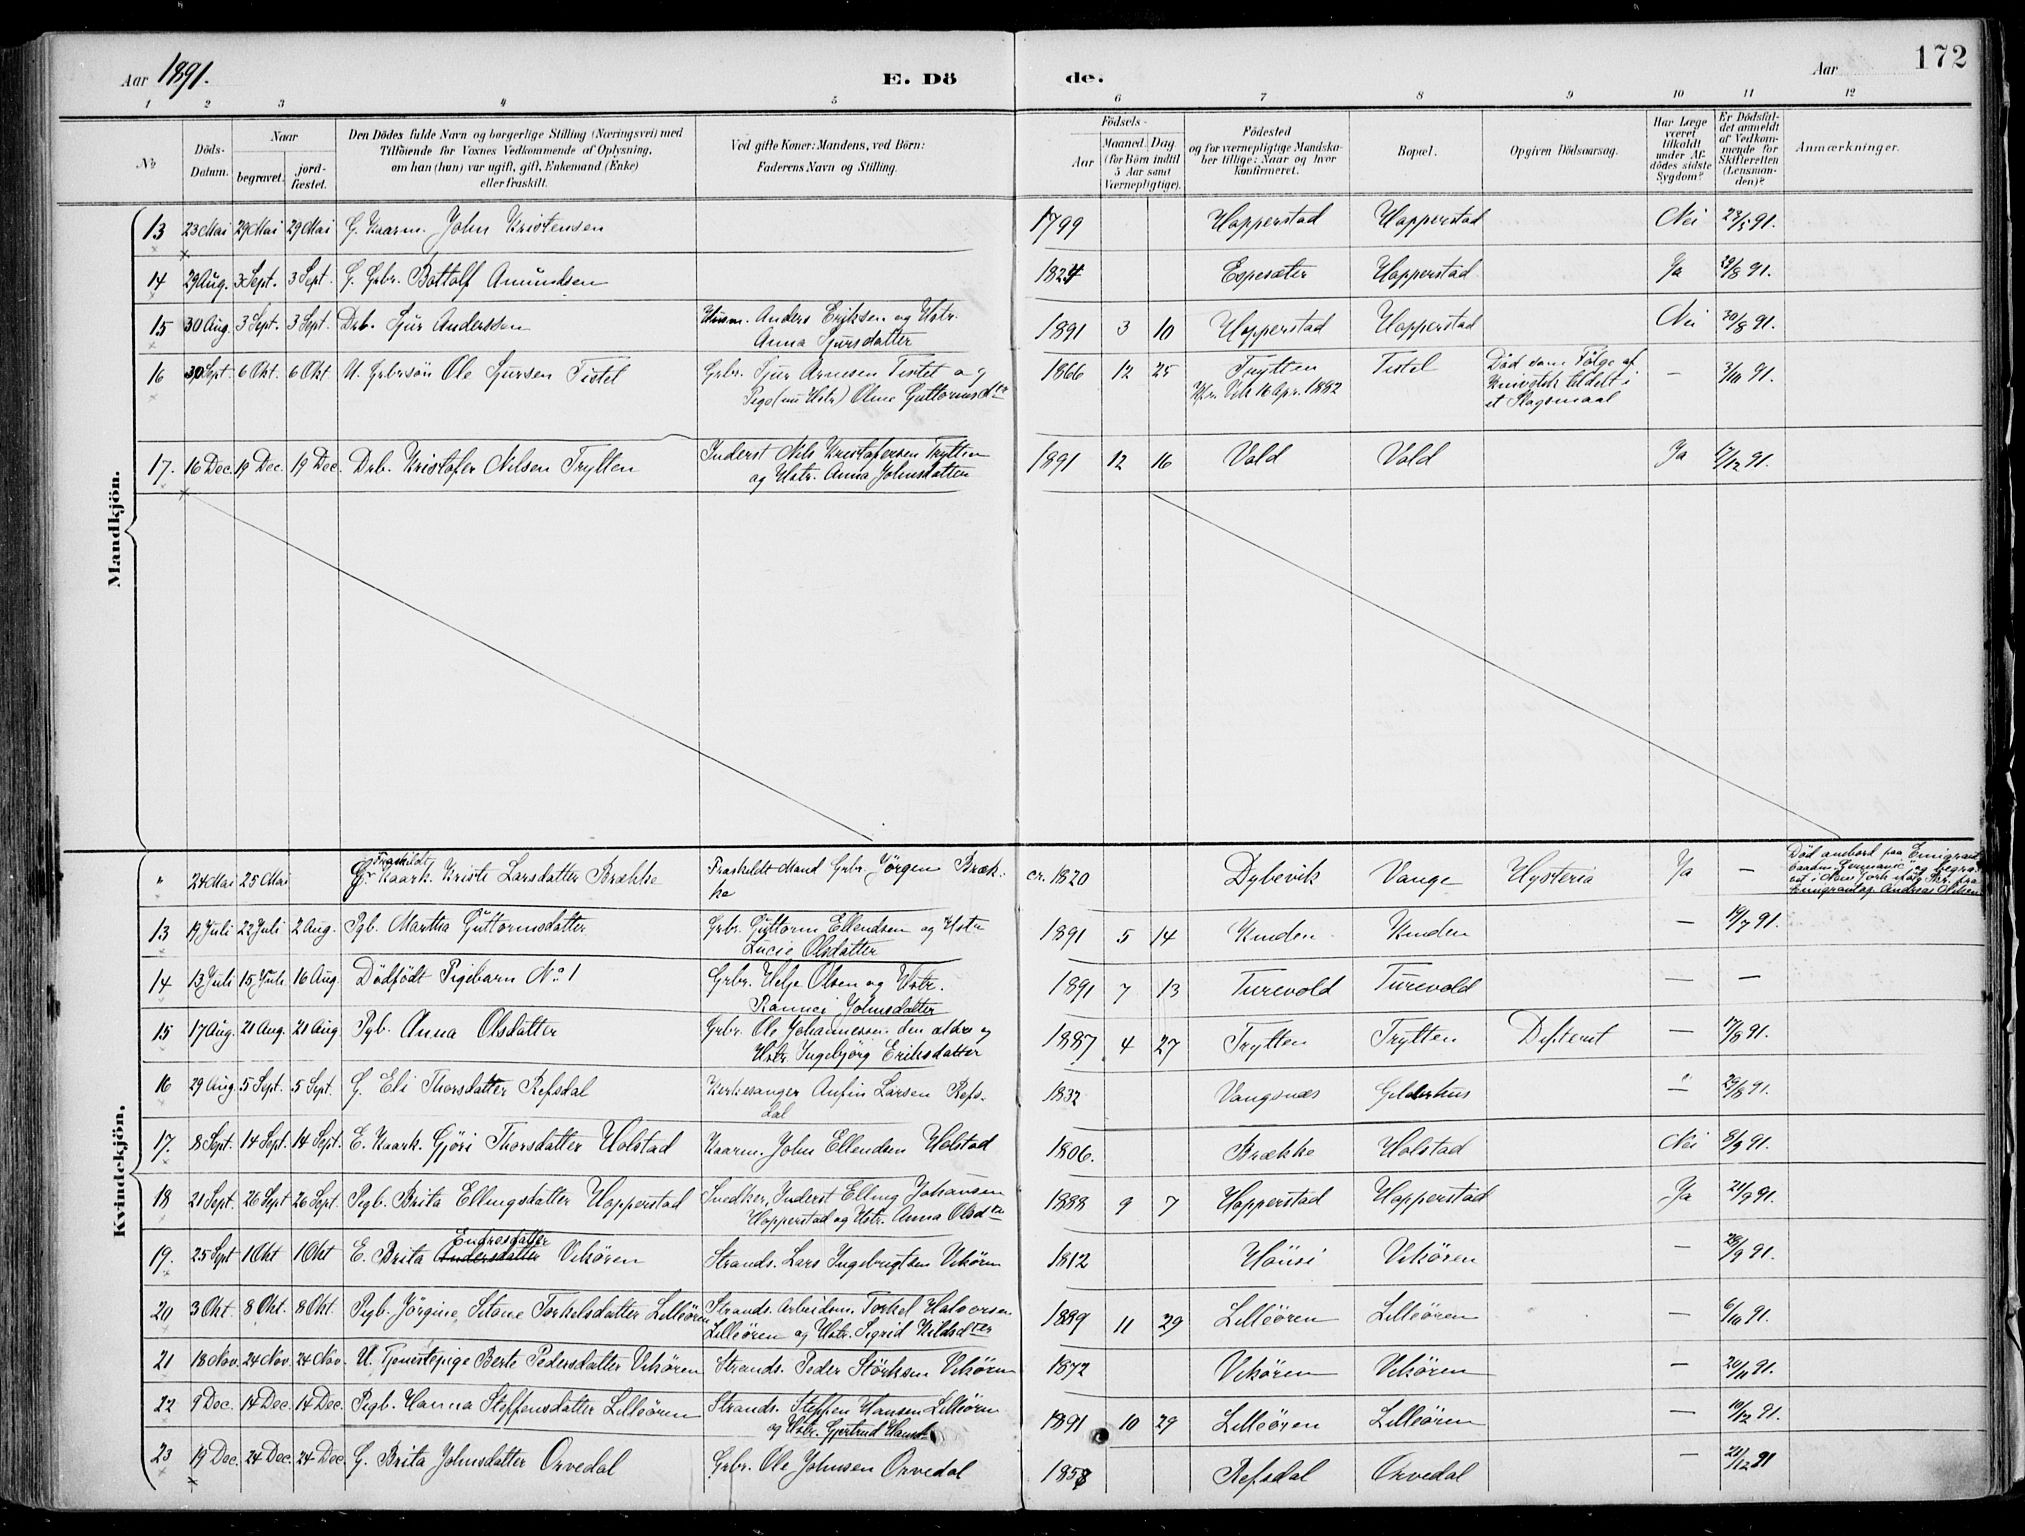 Aar 1891. E. Dö de. Aar 172
1 2 3 4 5 6 7 8 9 10 11 12
No
Döds-Datum.
Naar
begravet. jord-fæstet.
Den Dödes fulde Navn og borgerlige Stilling (Næringsvei) med
Tilföiende for Voxnes Vedkommende af Oplysning,
om han (hun) var ugift, gift, Enkemand (Enke)
eller fraskilt.
Ved gifte Koner: Mandens, ved Börn:
Faderens Navn og Stilling.
Födsels-
Aar Maaned. Dag
(for Börn indtil
5 Aar samt
Værnepligtige).
Födested
og for værnepligtige Mandska-
ber tillige: Naar og hvor
konfirmeret.
Bopæl.
Opgiven Dödsaarsag.
Har Læge
været
tilkaldt
under Af-
dödes sidste
Sygdom?
Er Dödsfal-
det anmeldt
af Vedkom-
mende for
Skifteretten
(Lensman-
den)?
Anmærkninger.
Mandkjön.
13 23 Mai 29 Mai 29 Mai G. Kaarm. John Kristensen 1799 Hopperstad Hopperstad Nei 23/5 91.
14 29 Aug. 3 Sept. 3 Sept. G. Grbr. Bottolf Amundsen 1824 Espesæter Hopperstad Ja 29/8 91.
15 30 Aug. 3 Sept. 3 Sept. Drb. Sjur Anderssen Husm. Anders Eriksen og Hstr. 1891 3 10 Hopperstad Hopperstad Nei 30/8 91.
Anna Sjursdatter
16 30 Sept. 6 Okt. 6 Okt. U. Grbrsön Ole Sjursen Tistel Grbr. Sjur Arnesen Tistel og 1866 12 25 Trytten Tistel Död som Fölge af — 3/10 91.
Pige (nu Hstr) Oline Guttormsdtr Vik 16 Apr. 1882 Knivstik tildelt i
et Slagsmaal
17. 16 Dec. 19 Dec. 19 Dec. Drb. Kristofer Nilsen Trytten Inderst Nils Kristofersen Trytten 1891 12 16 Vold Vold Ja 17/12 91.
og Hstr. Anna Johnsdatter
Kvindekjön.
" 24 Mai 25 Mai Fraskildt Kaark. Kristi Larsdatter Brække Fraskildt Mand Grbr. Jörgen Bræk- cr. 1820 Dybevik Vange Hysteria Ja — Död ombord paa Emigrant
ke baaden Germanic og begra-
vet i New York
Emigrantag. Andreas Nilsen
13 19 Juli 22 Juli 2 Aug. Pgb. Martha Guttormsdatter Grbr. Guttorm Ellendsen og Hstr 1891 5 14 Kinden Kinden — 19/7 91.
Lucie Olsdatter
14 13 Juli 15 Juli 16 Aug. Dödfödt Pigebarn No 1 Grbr. Helje Olsen og Hstr. 1891 7 13 Turevold Turevold — —
Rannei Johnsdatter
15 17 Aug. 21 Aug. 21 Aug. Pgb. Anna Olsdatter Grbr. Ole Johannessen den ældre og 1887 4 27 Trytten Trytten Difterit — 17/8 91.
Hstr Ingebjörg Eriksdatter
16 29 Aug. 5 Sept. 5 Sept. G. Eli Thorsdatter Refsdal Kirkesanger Anfin Larsen Refs- 1832 Vangsnæs Gilderhus — 29/8 91.
dal
17. 8 Sept. 14 Sept. 14 Sept. E. Kaark. Gjöri Thorsdatter Holstad Kaarm. John Ellendsen Holstad 1806. Brække Holstad Nei 8/9 91.
18 21 Sept. 26 Sept 26 Sept. Pgb. Brita Ellingsdatter Hopperstad Snedker, Inderst Elling Johansen 1888 9 7 Hopperstad Hopperstad Ja 21/9 91.
Hopperstad og Hstr. Anna Olsdtr
19. 25 Sept 1 Okt 1 Okt E. Brita Andersdatter Endresdatter Vikören Strands. Lars Ingebrigtsen Vikören 1812 Hönsi Vikören — 28/9 91.
20 3 Okt. 8 Okt. 8 Okt. Pigb. Jörgine, Sitane Torkelsdatter Lilleören Strands. Arbeidsm. Torkel Halvorsen 1889 11 29 Lilleören Lilleören — 6/10 91.
Lilleören og Hstr. Sigrid Kildsdtter
21 18 Nov. 24 Nov. 24 Nov. U. Tjenestepige Berte Pedersdatter Vikören Strands. Peder Störksen Vikören 1872 Vikören Vikören — 20/11 91.
22 9 Dec. 14 Dec. 14 Dec. Pigb. Hanna Steffensdatter Lilleören Strands. Steffen Hansen Lilleören 1891 10 29 Lilleören Lilleören — 10/12 91.
og Hstr. Gjertrud Hansd.
23 19 Dec. 24 Dec. 24 Dec. G. Brita Johnsdatter Orvedal Grbr. Ole Johnsen Orvedal 1858 Refsdal Orvedal — 21/12 91